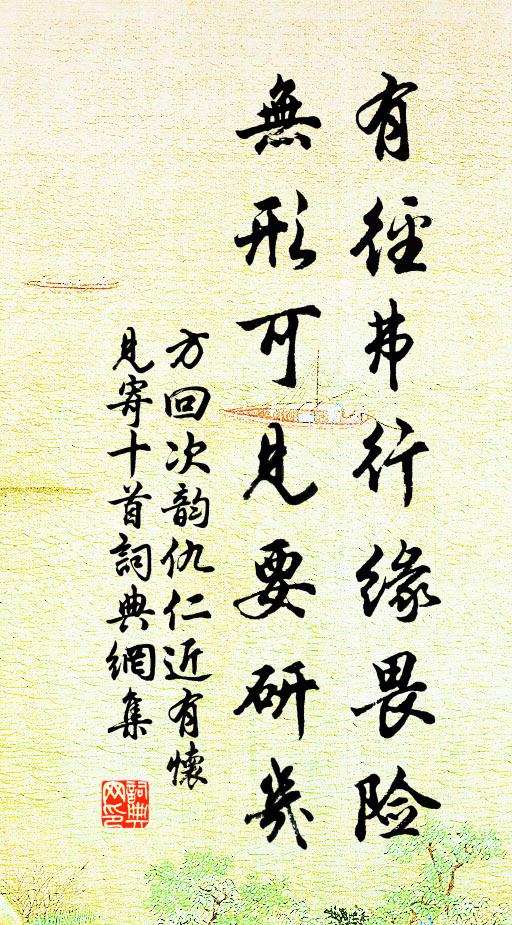 有徑弗行缘畏险
無形可見要研幾
方回次韵仇仁近有懷
見寄十首詞典網集
詞典网印